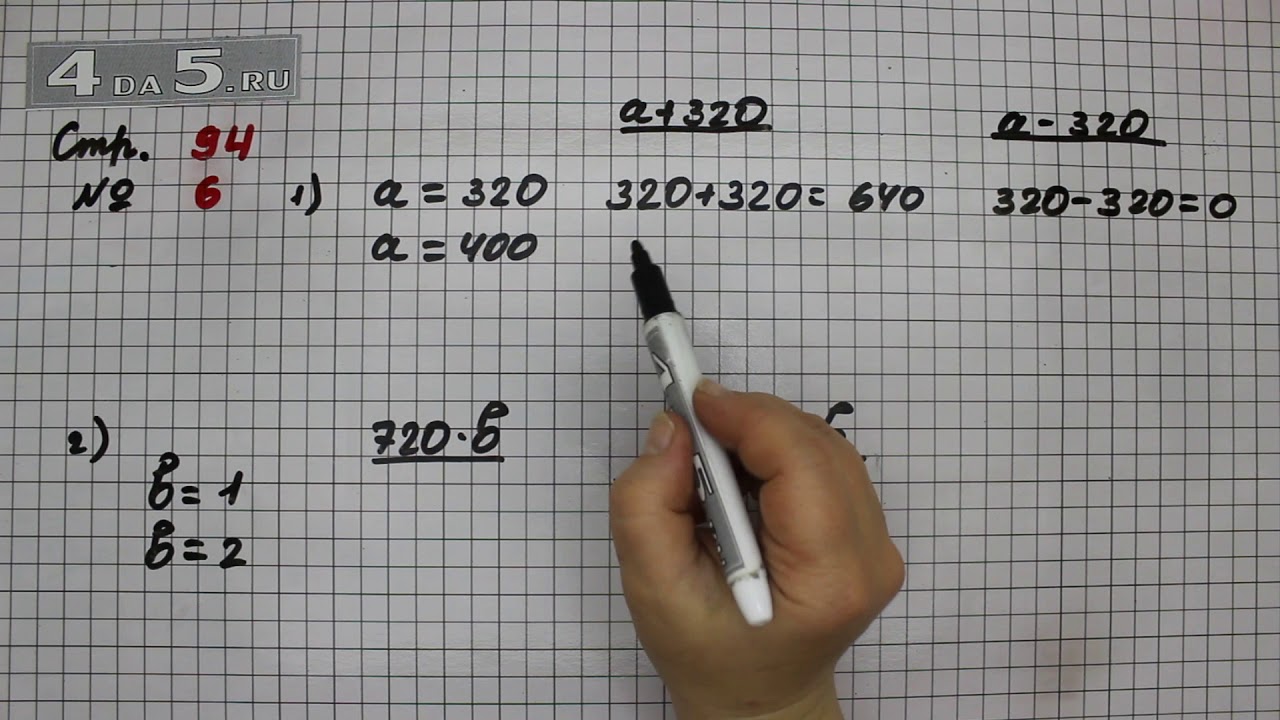 4 DA 5.RU
a+320
a-320
Стр. 94
№ 6
1) a = 320 320+320= 640 320-320=0
a = 400
2) 720·в
в= 1
в= 2